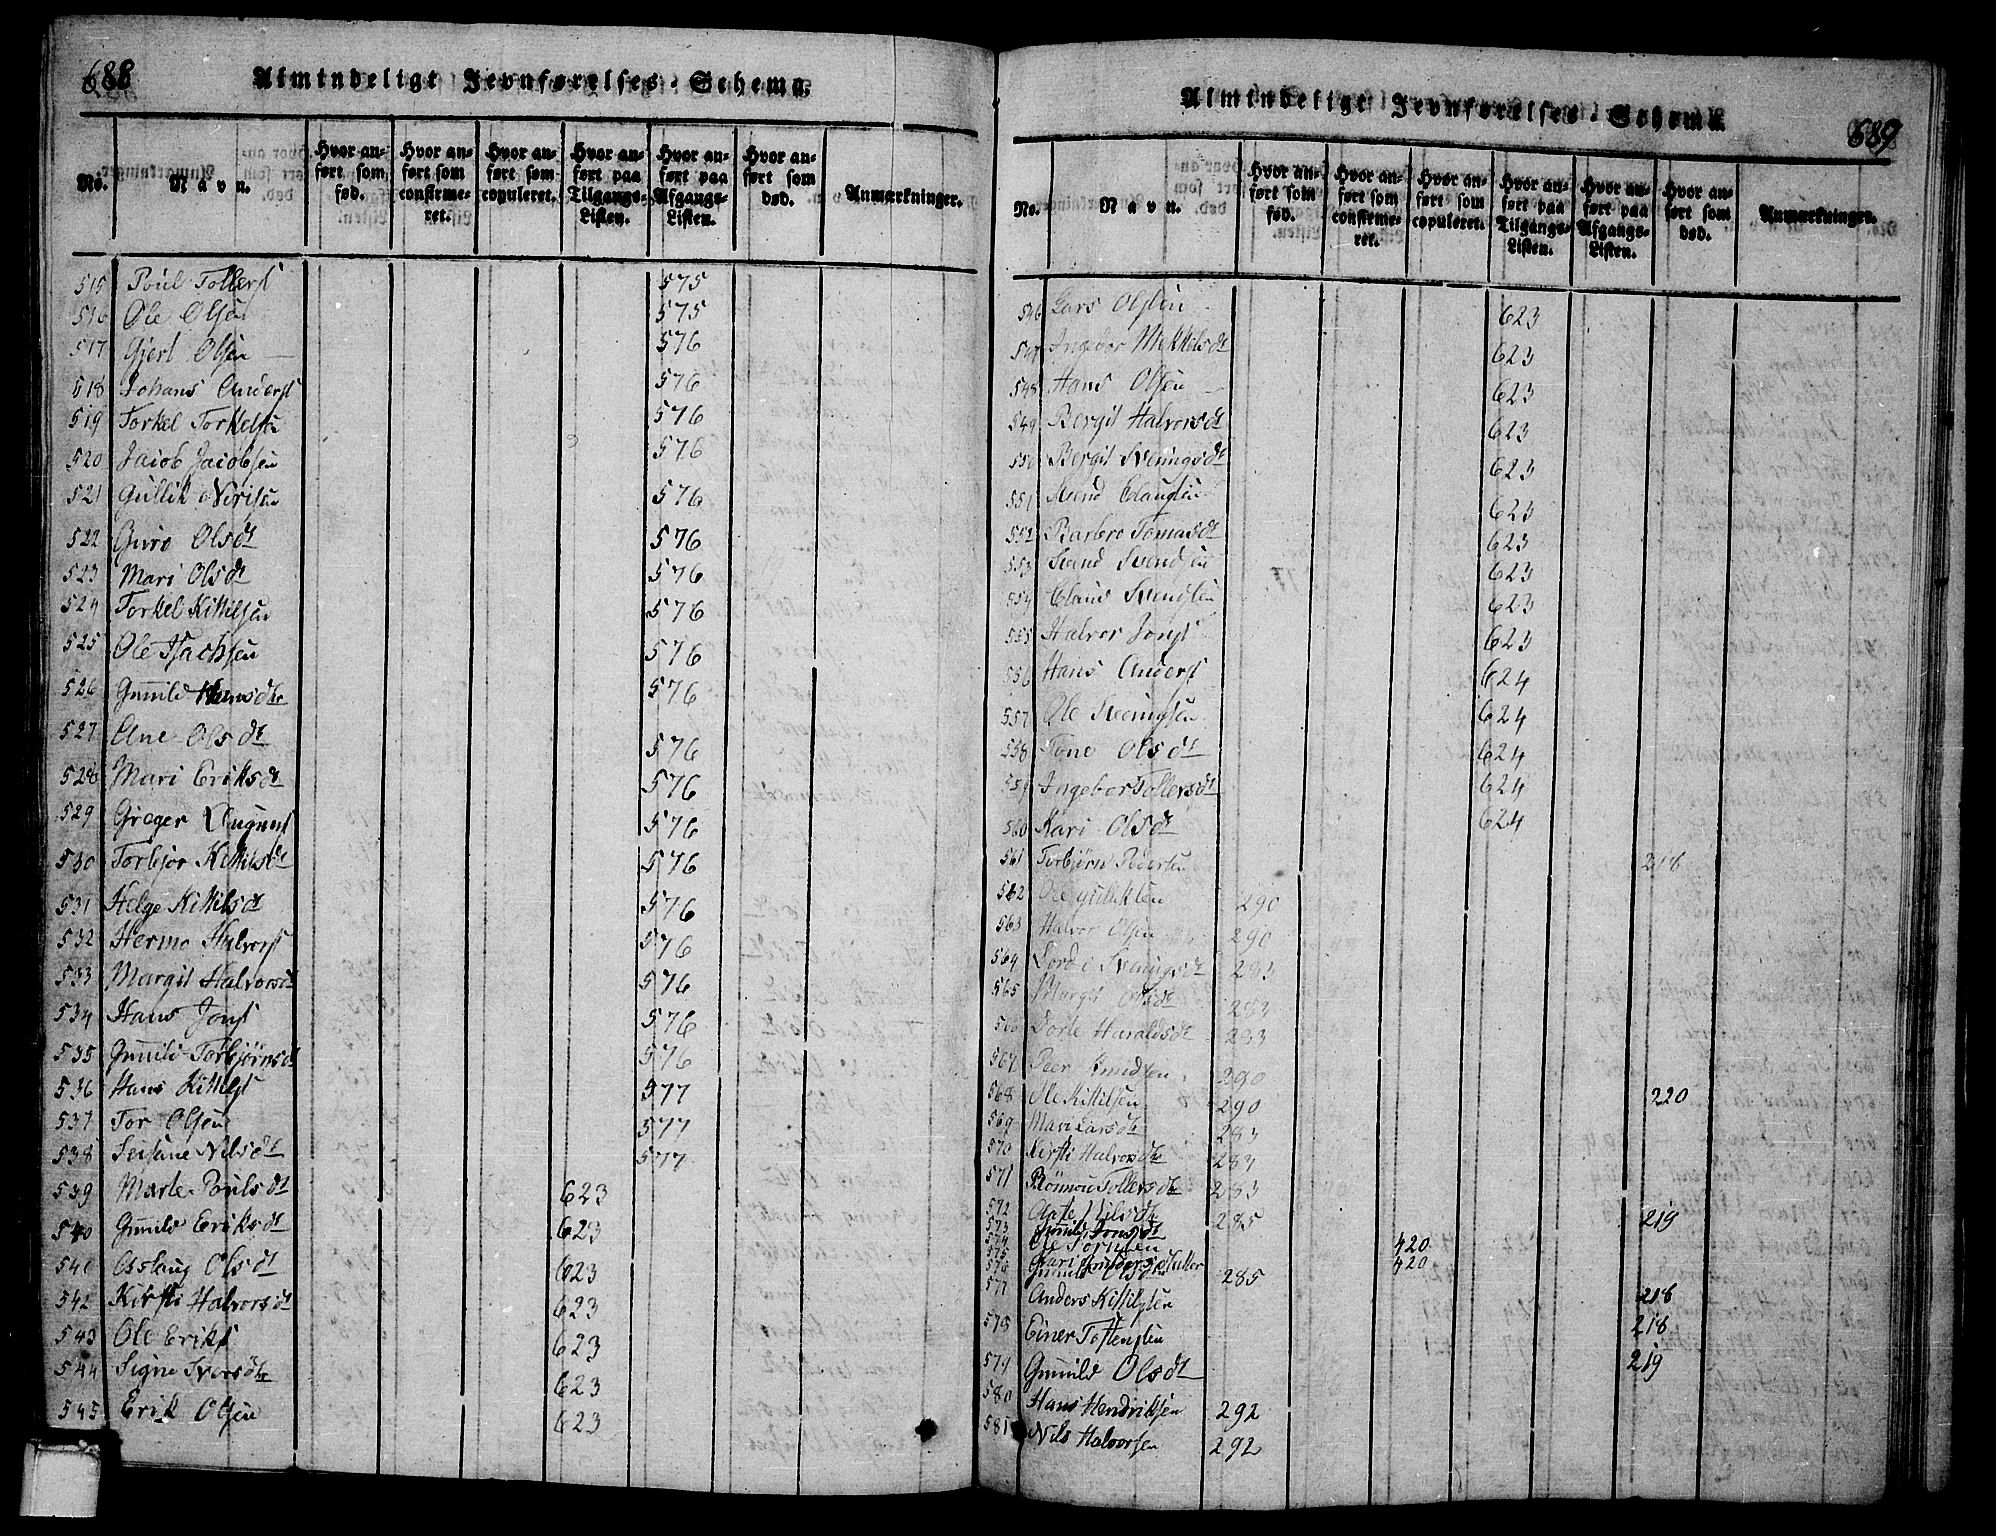 688
Almindeligt Jevnførelses-Schema.
No. Navn. Hvor anført som fød. Hvor anført som confirmeret. Hvor anført som copuleret. Hvor anført paa Tilgangs-Listen. Hvor anført paa Afgangs-Listen. Hvor anført som død. Anmærkninger.
515 Poul Tollefst 575
516 Ole Olsen 575
517 Gjert Olsen 576
518 Johans Anderst 576
519 Torkel Torkelsen 576
520 Jacob Jacobsen 576
521 Gullik Nirisen 576
522 Guro Olsdt 576
523 Mari Olsdt 576
524 Torkel Kittilsen 576
525 Ole Isachsen 576
526 Gunild Hansdtr 576
527 Ane Olsdt 576
528 Mari Eriksdt 576
529 Greger 576
530 Torbjor Kittilsdt 576
531 Helge Kittilsdt 576
532 Hermo Halvorst 576
533 Margit Halvorsdt 576
534 Hans Jonst 576
535 Gunild Torbjørnsdt 576
536 Hans Kittilst 577
537 Tor Olsen 577
538 Nilsdt 577
539 Marte Poulsdt 623
540 Gunild Eriksdt 623
540 Asslaug Olsdt 623
542 Kirsti Halvorsdt 623
543 Ole Erikst 623
544 Signe Iversdtr 623
545 Erik Olsen 623
689
Almindeligt Jevnførelses-Schema.
No. Navn. Hvor anført som fød. Hvor anført som confirmeret. Hvor anført som copuleret. Hvor anført paa Tilgangs-Listen. Hvor anført paa Afgangs-Listen. Hvor anført som død. Anmærkninger.
546 Lars Olsen 623
547 Ingebor Mikkelsdt 623
548 Hans Olsen 623
549 Bergit Halvorsdt 623
550 Bergit Sveningsdt 623
551 Svend Claussen 623
552 Barbro Tomasdt 623
553 Svend Svendsen 623
554 Claus Svendsen 623
555 Halvor Jonst 623
556 Hans Anderst 624
557 Ole Sveningsen 624
558 Tone Olsdt 624
559 Ingebor Tollefsdt 624
560 Kari Olsdt 624
561 Torbjørn Pedersen 218
562 Ole Gulliksen 290
563 Halvor Olsen 290
564 Sveningsdt 283
565 Margit Olsdt 283
566 Dorte Haraldsdt 283
567 Peer Knudsen 290
568 Ole Kittilsen 290 220
569 Mari Larsdt 283
570 Kirsti Halvorsdtr 283
571 Rønnou Tollefsdtr 283
572 Nilsdtr 285 219
573 Gunild Jonsdt
574 Ole 420
575 Kari 420
576 Gunild Olsdtr 285
577 Anders Kittilsen 218
578 Einer Tostensen 218
579 Gunild Olsdt 219
580 Hans Hendriksen 292
581 Nils Halvorsen 292